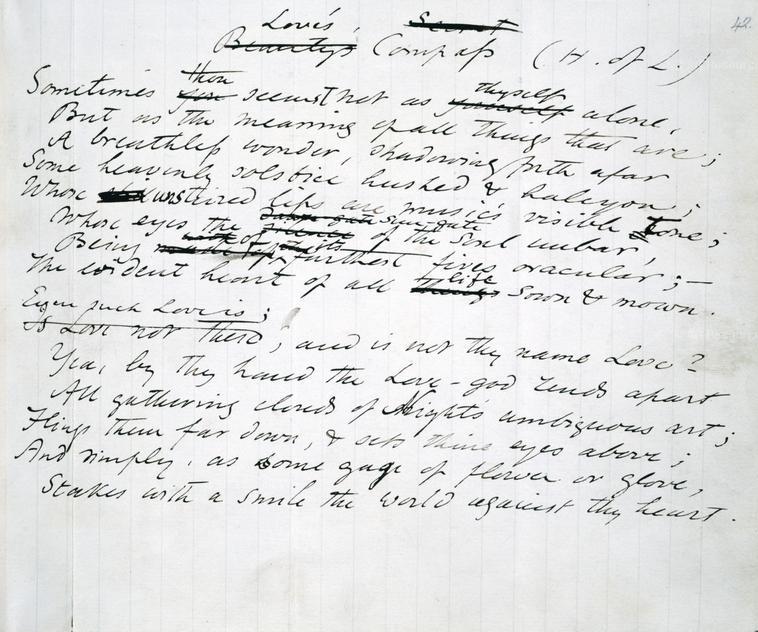 42.
Love's, Secret
Beauty's Compass (H. of L.)
thou thyself
Sometimes you seemst not as yourself alone,
But as the meaning of all things that are;
A breathless wonder, shadowing forth afar
Some heavenly solstice hushed & halcyon;
Whose unstirred lips are music's visible tone;
sun-gate
Whose eyes the of the soul unbar,
of its
Being furthest fires oracular;—
life
The evident heart of all things sown & mown.
Even such Love is;
Is Love not there, and is not thy name Love?
Yea, by thy hand the Love-god rends apart
All gathering clouds of Night's ambiguous art;
Flings them far down, & sets thine eyes above;
And simply, as some gage of flower or glove,
Stakes with a smile the world against thy heart.